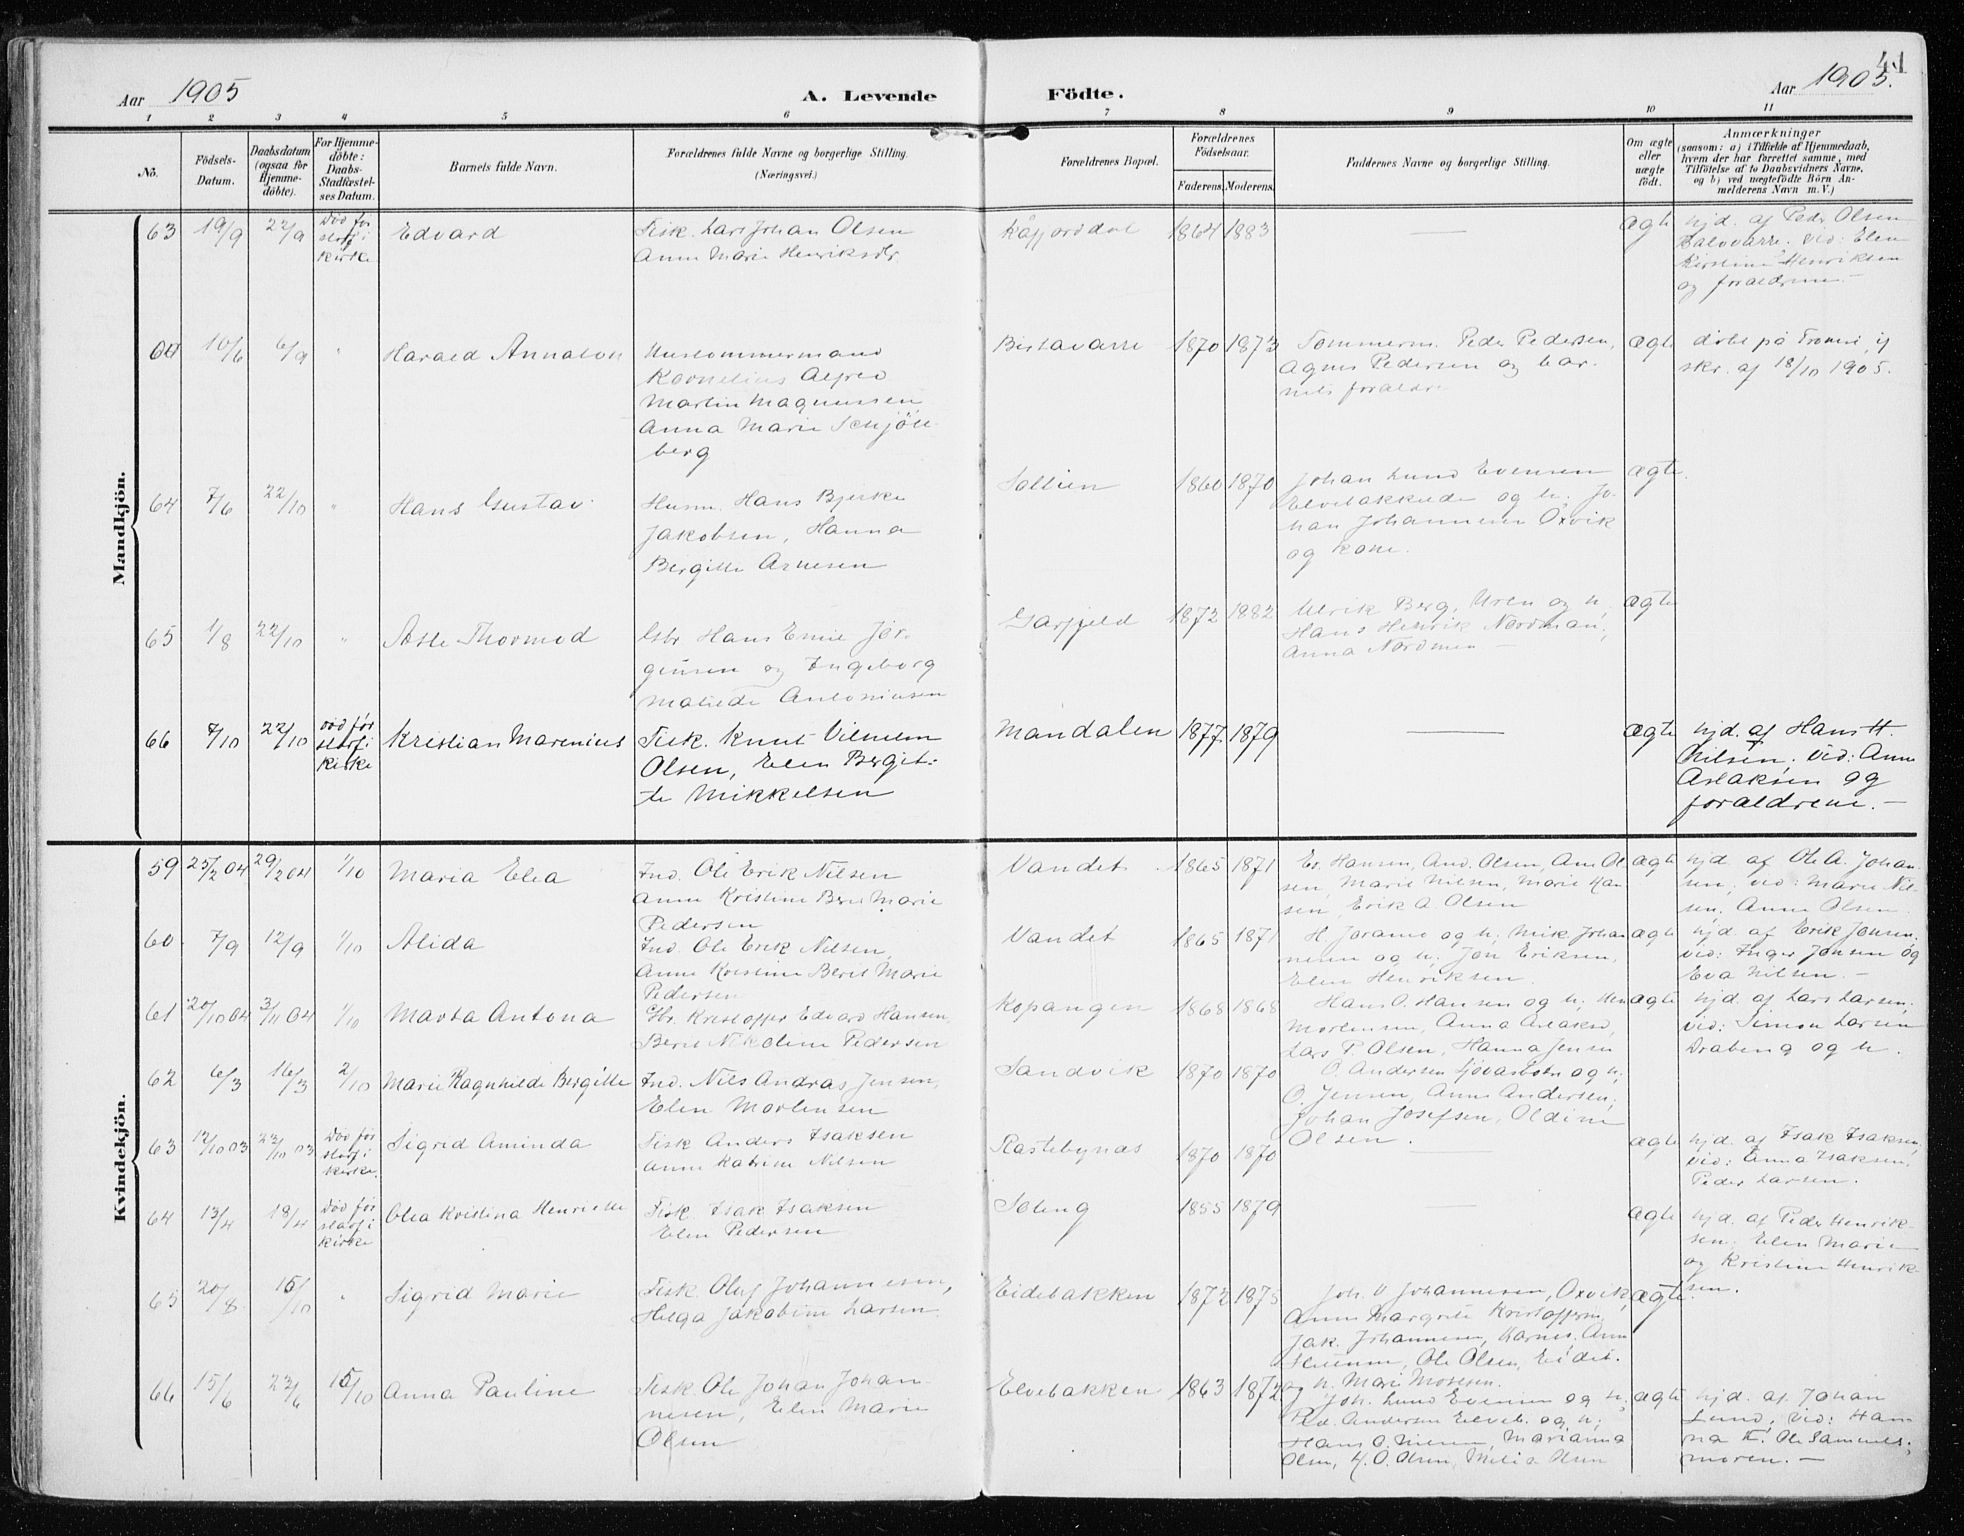 41
Aar 1905 A. Levende Födte. Aar 1905.
1 2 3 4 5 6 7 8 9 10 11
No. Födsels-Datum. Daabsdatum (ogsaa for Hjemmedöbte). For Hjemmedöbte: Daabs-Stadfæstelses Datum. Barnets fulde Navn. Forældrenes fulde Navne og borgerlige Stilling. (Næringsvei.) Forældrenes Bopæl. Forældrenes Födselsaar. Faderens. Moderens. Faddernes Navne og borgerlige Stilling. Om ægte eller uægte födt. Anmærkninger (saasom: a) i Tilfælde af Hjemmedaab, hvem der har forrettet samme, med Tilföielse af to Daabsvidners Navne, og b) ved uægtefödte Börn Anmelderens Navn m. V.)
Mandkjön.
63 19/9 22/9 Död før stadf. i kirke Edvard Fisk. Lars Johan Olsen
Anne Marie Henriksdr. Kåfjorddal 1864 1883 — ægte hjd. af Peder Olsen
vid: Elen
Kirstine Henriksen
og foraldrene. —
64 10/6 6/9 " Harald Annaton
Kornelius Alfred
Martin Magnussen
Anna Marie Schjöl-
berg Birtavarre 1870 1873 Tømmerm. Peder Pedersen,
Agnes Pedersen og bar-
nets foraldre ægte döbt på Tromsö, if
skr. af 18/10 1905.
64 7/6 22/10 " Hans Gustav Husm. Hans Bjerke
Jakobsen, Hanna
Bergitte Arnesen 1860 1870 Johan Lund Evensen
og h. Jo-
han Johannesen Oxvik
og kone. ægte
65 1/8 22/10 " Asle Thormod Gbr. Hans Emil Jör-
gensen og Ingeborg
Matilde Antoniusen Garfjeld 1872 1882 Ulrik Berg, Uren og h.
Hans Henrik Nordman,
Anna Nordmen — ægte
66 7/10 22/10 död før stadf. i kirke Kristian Marenius Fisk. Knut Vilhelm
Olsen, Elen Bergit-
te Mikkelsen Mandalen 1877 1879 — ægte hjd. af Hans H.
Nilsen, vid: Anne
Aslaksen og
foraldrene. —
Kvindekjön.
59 25/2 04 29/2 04 1/10 Maria Elea Ind. Ole Erik Nilsen
Anne Kristine Berit Marie
Pedersen Vandet 1865 1871 Er. Hansen, And. Olsen, Ane Ol-
sen, Marie Nilsen, Marie Han-
sen, Erik A. Olsen ægte hjd. af Ole A. Johan-
sen, vid: Marie Nil-
sen. Anne Olsen.
60 7/9 12/9 1/10 Alida Ind. Ole Erik Nilsen,
Anne Kristine Berit Marie
Pedersen Vandet 1865 1871 og h. Mik. Johan-
nesen og h. Jon Eriksen,
Elen Henriksen. ægte hjd. af Erik Jensen,
vid: Inger Jonsen og
Eva Nilsen. —
61 20/10 04 3/11 04 1/10 Marta Antona Gbr. Kristoffer Edvard Hansen,
Berit Nikoline Pedersen Kopangen 1868 1868 Hans O. Hansen og h.
Mortensen, Anna
Lars P. Olsen, Hanna Jensen ægte hjd. af Lars Larsen,
vid: Simon Larsen
Drabeng og h.
62 6/3 16/3 2/10 Marie Ragnhilde Bergitte Ind. Nils Andras Jensen,
Elen Mortensen Sandvik 1870 1870 O. Andersen og h.
O. Jensen, Anne Andersen,
Johan Josefsen, Oldine
Olsen.
63 12/10 03 23/10 03 Död før stadf. i kirke. Sigrid Aminda Fisk. Anders Isaksen
Anne Katrine Nilsen Rastebynæs 1870 1870 — ægte hjd. af Isak Isaksen,
vid: Anna Isaksen,
Peder Larsen.
64 13/4 18/4 Död før stadf. i kirke Olea Kristina Henriette Fisk. Isak Isaksen
Elen Pedersen Soleng 1855 1879 — ægte hjd. af Peder Henrik-
sen. Elen Marie
og Kristine Henrik-
sen.
65 20/8 15/10 " Sigrid Marie Fisk. Oluf Johannesen,
Helga Jakobine Larsen. Eidebakken 1872 1875 Joh. Johannesen, Oxvik,
Anne Margrete
Jak. Johannesen, Karnes.
Ole Olsen, Eidet.
og h. Marie ægte
66 15/6 23/6 15/10 Anna Pauline Fisk. Ole Johan Johan-
nesen, Elen Marie
Olsen Elvebakken 1863 1872 Joh. Lund Evensen og h,
Ped. Andersen Elveb. og h;
Hans O. Marianna
Olsen, H. O. Olsen, ægte hjd. af Johan
Lund, vid: Han-
na
moren. —